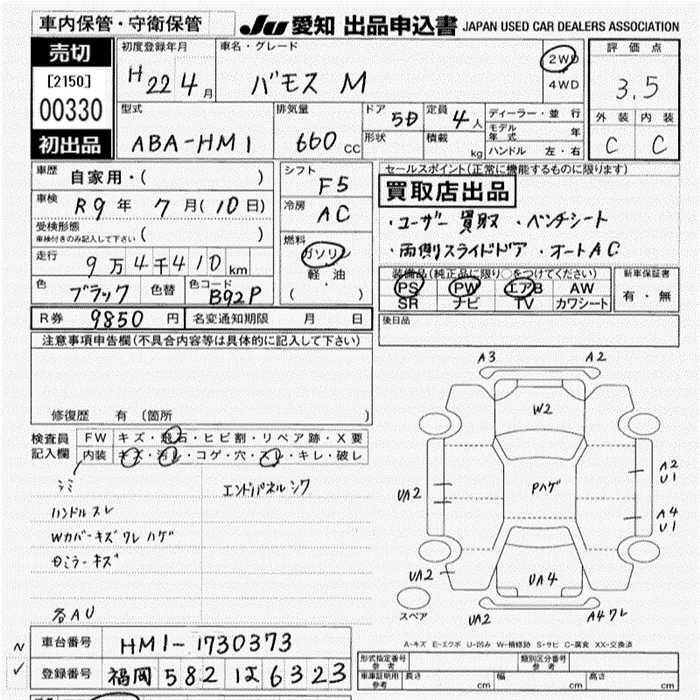 車内保管・守衛保管
JU 愛知 出品申込書 JAPAN USED CAR DEALERS ASSOCIATION
売切
[2150]
00330
初出品
初度登録年月 車名・グレード
H22 4月 バモス M 2WD 4WD
評価点
3.5
外装 内装
C C
型式 排気量 ドア 定員
ABA-HM1 660 CC 5D 4人
形状 積載 kg
ディーラー・並行
モデル年式 年
ハンドル 左・右
車歴 自家用・( )
車検 R9年 7月(10日)
受検形態 ( )
車検付きのみ記入して下さい
走行 9万4千410km
色 ブラック 色替 色コード B92P
シフト F5
冷房 AC
燃料 ガソリン
軽油
( ・ )
セールスポイント(正常に機能するものに限ります)
買取店出品
・ユーザー買取 ・ベンチシート
・両側スライドドア ・オートAC
装備品(純正品に限り○をつけてください)
PS PW エアB AW
SR ナビ TV カワシート
新車保証書
有・無
R券 9850円 名変通知期限 月 日
後日品
注意事項申告欄(不具合内容等は具体的に記入して下さい)
修復歴 有 (箇所 )
検査員記入欄
FW キズ・飛石・ヒビ割・リペア跡・X要
内装 キズ・汚レ・コゲ・穴・スレ・キレ・破レ
シミ エンドパネルシワ
ハンドルスレ
Wカバーキズ ワレ ハゲ
ミラーキズ
各AU
A3 A2
W2
Pハゲ
UA2
A2
U1
A4
U1
UA2
UA4
スペア
UA2 A4ワレ
A-キズ E-エクボ U-凹み W-補修跡 S-サビ C-腐食 XX-交換済
車台番号 HM1-1730373
登録番号 福岡 582 ほ 6323
形式指定番号 参考 類別区分番号 参考
車庫証明用 参考 長さ cm 幅 cm 高さ cm